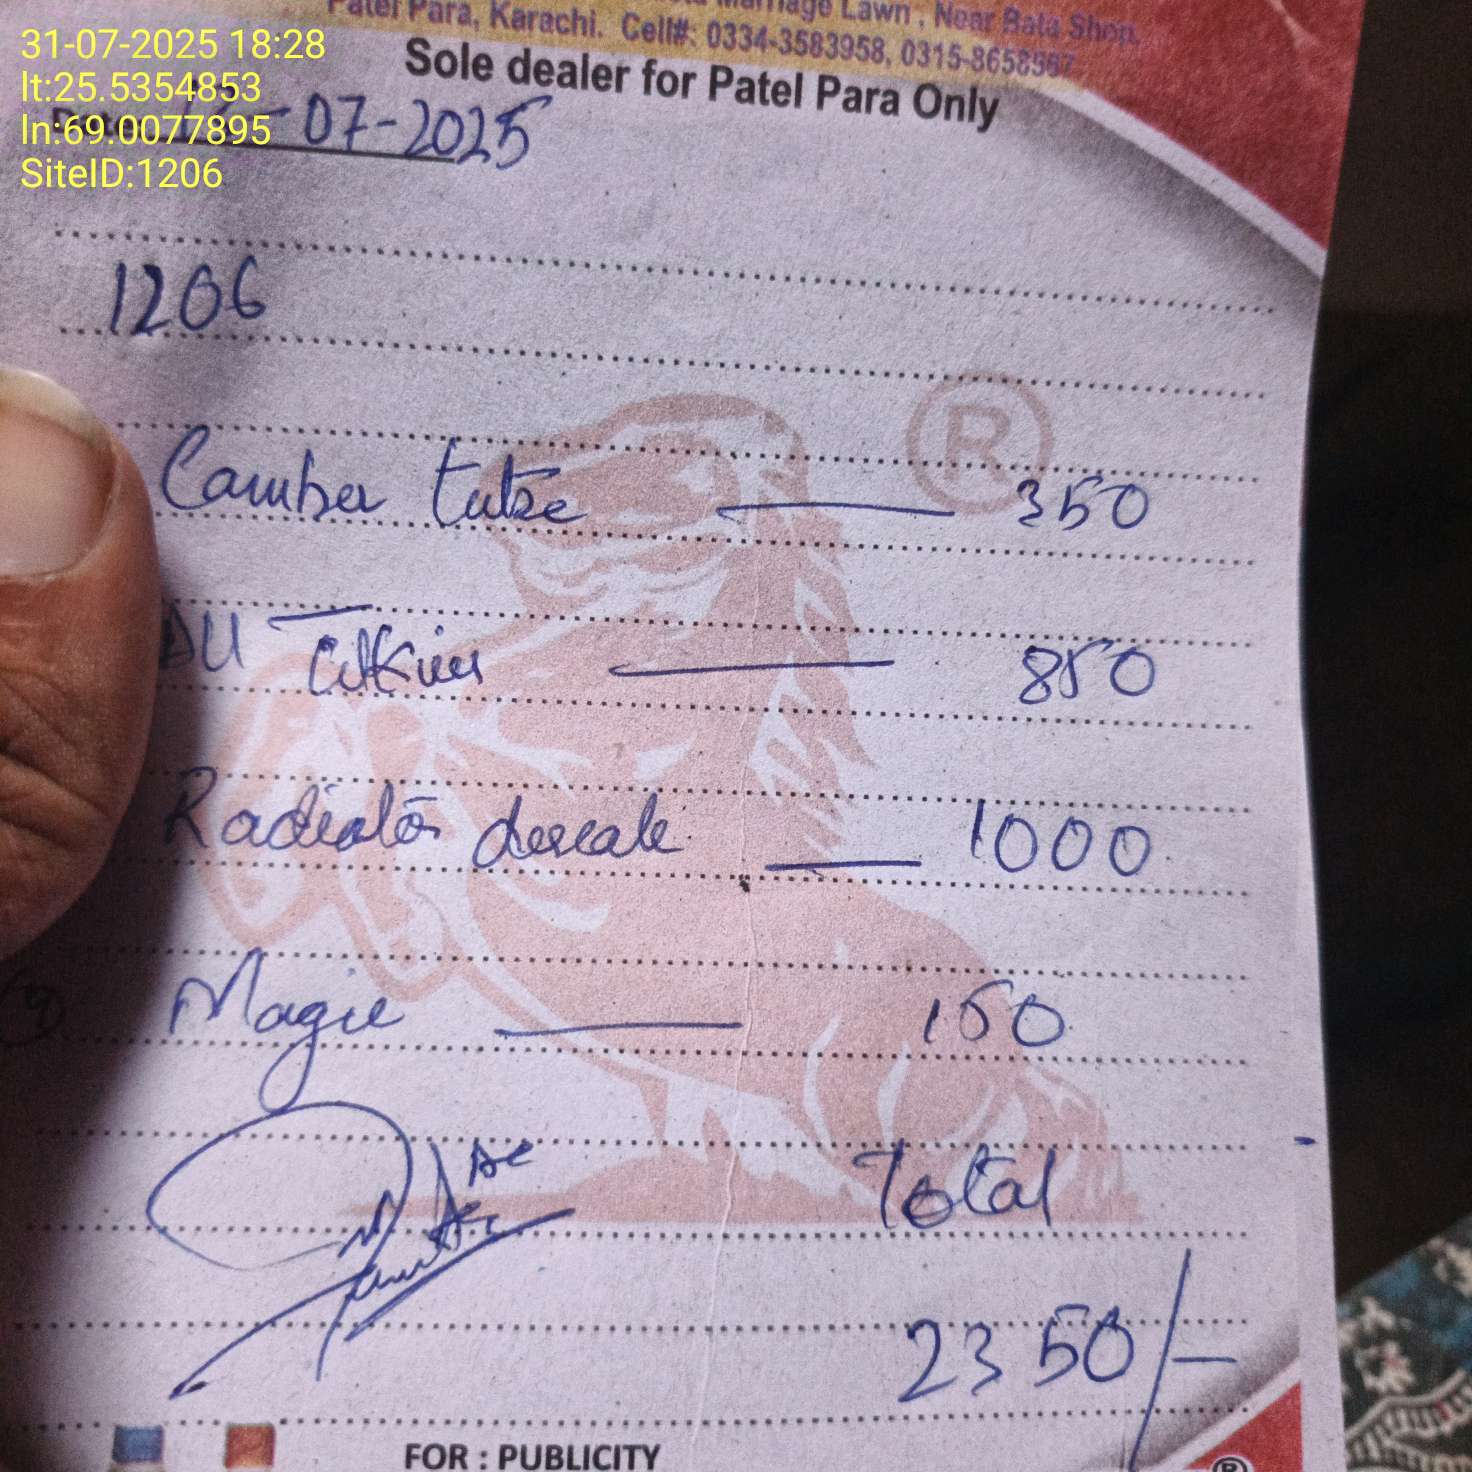 31-07-2025 18:28
lt:25.5354853
ln:69.0077895
SiteID:1206
Marriage Lawn, Near Bata Shop,
Patel Para, Karachi. Cell#: 0334-3583958, 0315-8658967
Sole dealer for Patel Para Only
-07-2025
1206
Camber tube 350
850
Radiator descale 1000
Magic 150
Total
2350/-
FOR : PUBLICITY
®